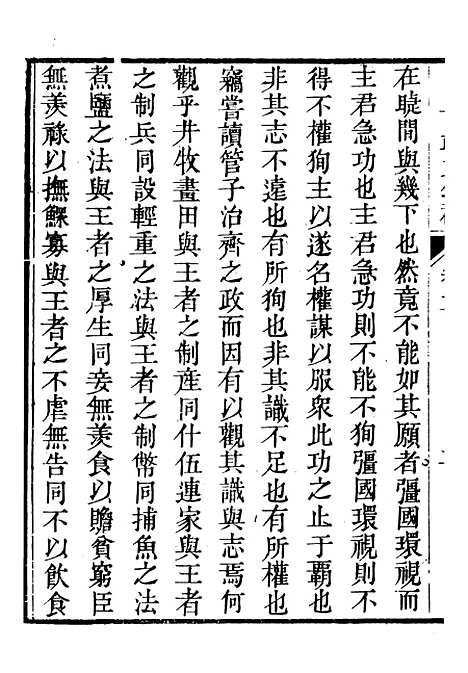 在晚間與幾下也然竟不能如其願者彊國環視而
主君急功也主君急功則不能不狥彊國環視則不
得不權狥主以遂名權謀以服衆此功之止于覇也
非其志不遠也有所狥也非其識不足也有所權也
竊嘗讀管子治齊之政而因有以觀其識與志焉何
觀乎井牧畫田與王者之制產同什伍連家與王者
之制兵同設輕重之法與王者之制幣同捕魚之法
煮鹽之法與王者之厚生同妾無羡食以贍貧窮臣
無羡祿以撫鰥寡與王者之不虐無告同不以飲食